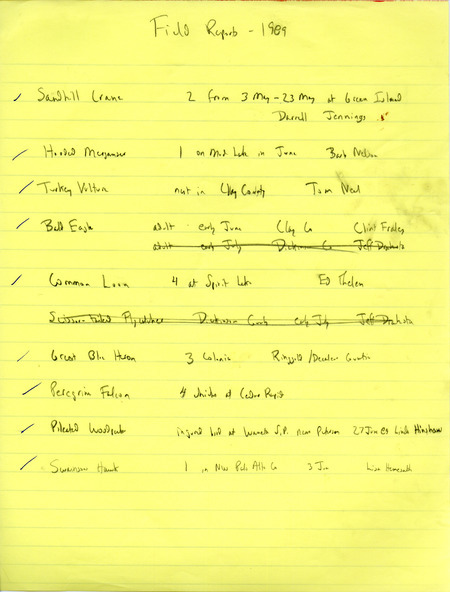 Field Reports - 1989
Sandhill Crane 2 from 3 May - 23 May at Green Island
Darrell Jennings
Hooded Merganser 1 on Mud Lake in June Barb Nelson
Turkey Vulture nest in Clay County Tom Neal
Bald Eagle adult early June Clay Co
adult early July Dickinson Co Jeff
Common Loon 4 at Spirit Lake Ed Thelen
Scissor-tailed Flycatcher Dickinson early July Jeff
Great Blue Heron 3 Colonies Ringgold / Decatur Counties
Peregrine Falcon 4 chicks at Cedar Rapids
Pileated Woodpecker injured bird at S.P. near 27 Jun 89 Linda Hinshaw
Swainson Hawk 1 in NW Palo Alto Co 3 Jun